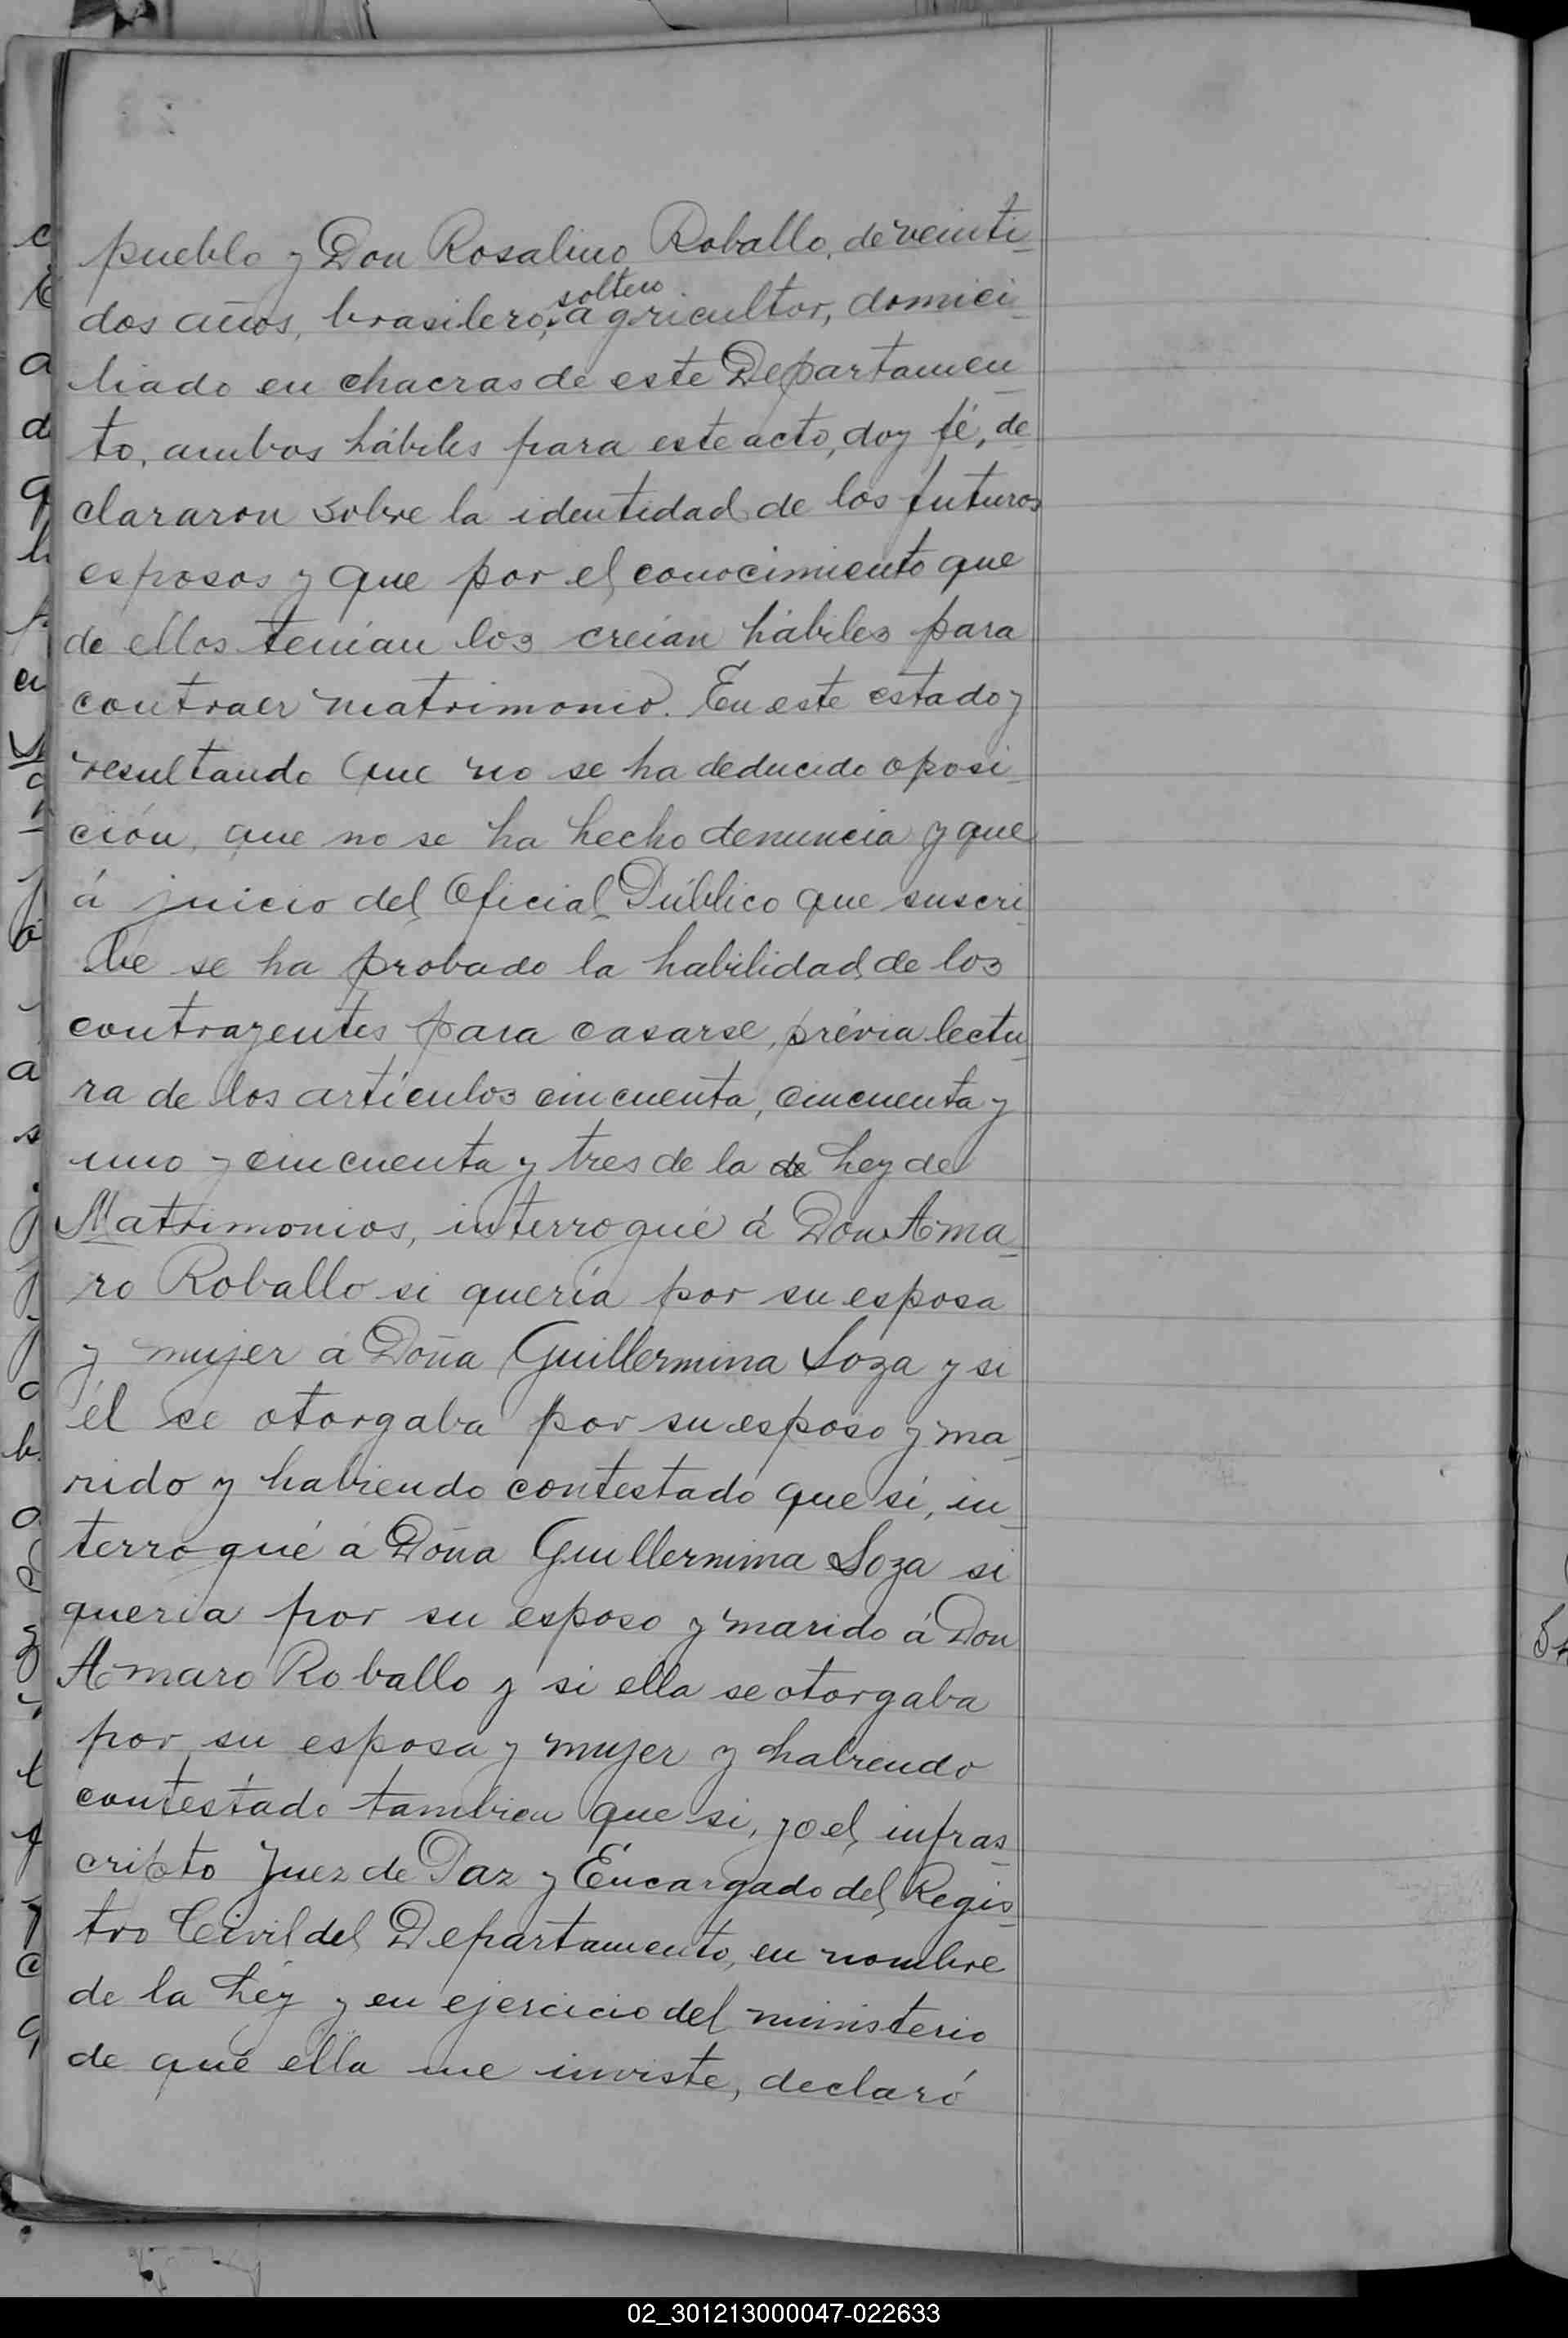 pueblo y Don Rosalino Roballo, de veinti-
soltero
dos años, brasilero, agricultor, domici-
liado en chacras de este Departamen-
to, ambos hábiles para este acto, doy fé, de-
clararon sobre la identidad de los futuros
esposos y que por el conocimiento que
de ellos tenían los creían hábiles para
contraer matrimonio. En este estado y
resultando que no se ha deducido oposi-
ción, que no se ha hecho denuncia y que
á juicio del Oficial Público que suscri-
be se ha probado la habilidad de los
contrayentes para casarse, prévia lectu-
ra de los artículos cincuenta, cincuenta y
uno y cincuenta y tres de la de Ley de
Matrimonios, interrogué á Don Ama-
ro Roballo si quería por su esposa
y mujer á Doña Guillermina Soza y si
él se otorgaba por su esposo y ma-
rido y habiendo contestado que sí, in-
terrogué á Doña Guillermina Soza si
queria por su esposo y marido á Don
Amaro Roballo y si ella se otorgaba
por su esposa y mujer y habiendo
contestado tambien que si, yo el infras-
cripto Juez de Paz y Encargado del Regis-
tro Civil del Departamento, en nombre
de la Léy y en ejercicio del ministerio
de que ella me inviste, declaró
02_301213000047-022633